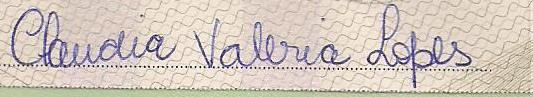 Claudia Valeria Lopes